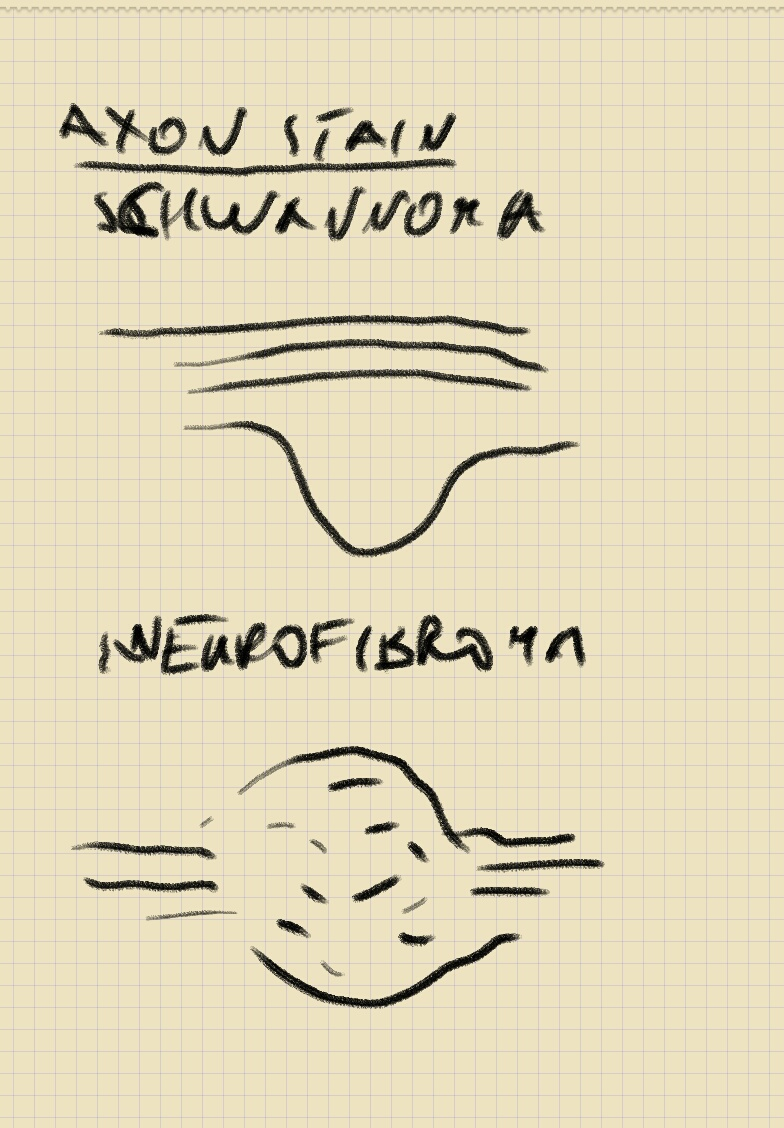 AXON STAIN
SCHWANNOMA
NEUROFIBROMA